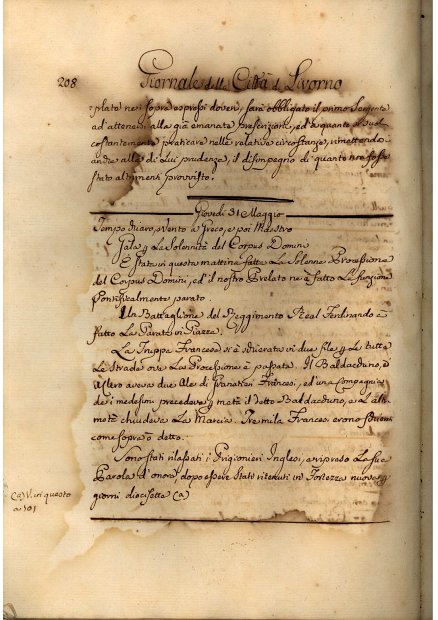 208 Giornale della Città di Livorno
plato nei sopra espressi doveri, sarà obbligato il primo Sergente
ad attenersi alla già emanata prescrizione, ed a quanto si suol
costantemente praticare nelle relative circostanze, rimettendosi
anche alla di Lui prudenza, il disimpegno di quanto non fosse
stato altrimenti provvisto.
Giovedì 31 Maggio
Tempo chiaro, Vento a Greco, e poi Maestro
Gala per La Solennità del Corpus Domini
È stata in questa mattina fatta La Solenne Processione
del Corpus Domini, ed il nostro Prelato ne à fatto La funzione
Pontificalmente parato.
Un Battaglione del Reggimento Real Ferdinando à
fatto La Parata in Piazza.
La Truppa Francese si è schierata in due file per Le tutte
Le Strade ove La Processione è passata. Il Baldacchino, e
Clero aveva due Ale di Granatieri Francesi, ed una Compagnia
dei medesimi precedeva per metà il detto Baldacchino, e L'altra
metà chiudeva La Marcia. Tremila Francesi erono
come sopra ò detto.
Sono stati rilasciati i Prigionieri Inglesi, e ripreso La sua
Parola d'onore, dopo essere Stati ritenuti in Fortezza nuova per
giorni diecisette (a)
(a) V. in questo
a 101